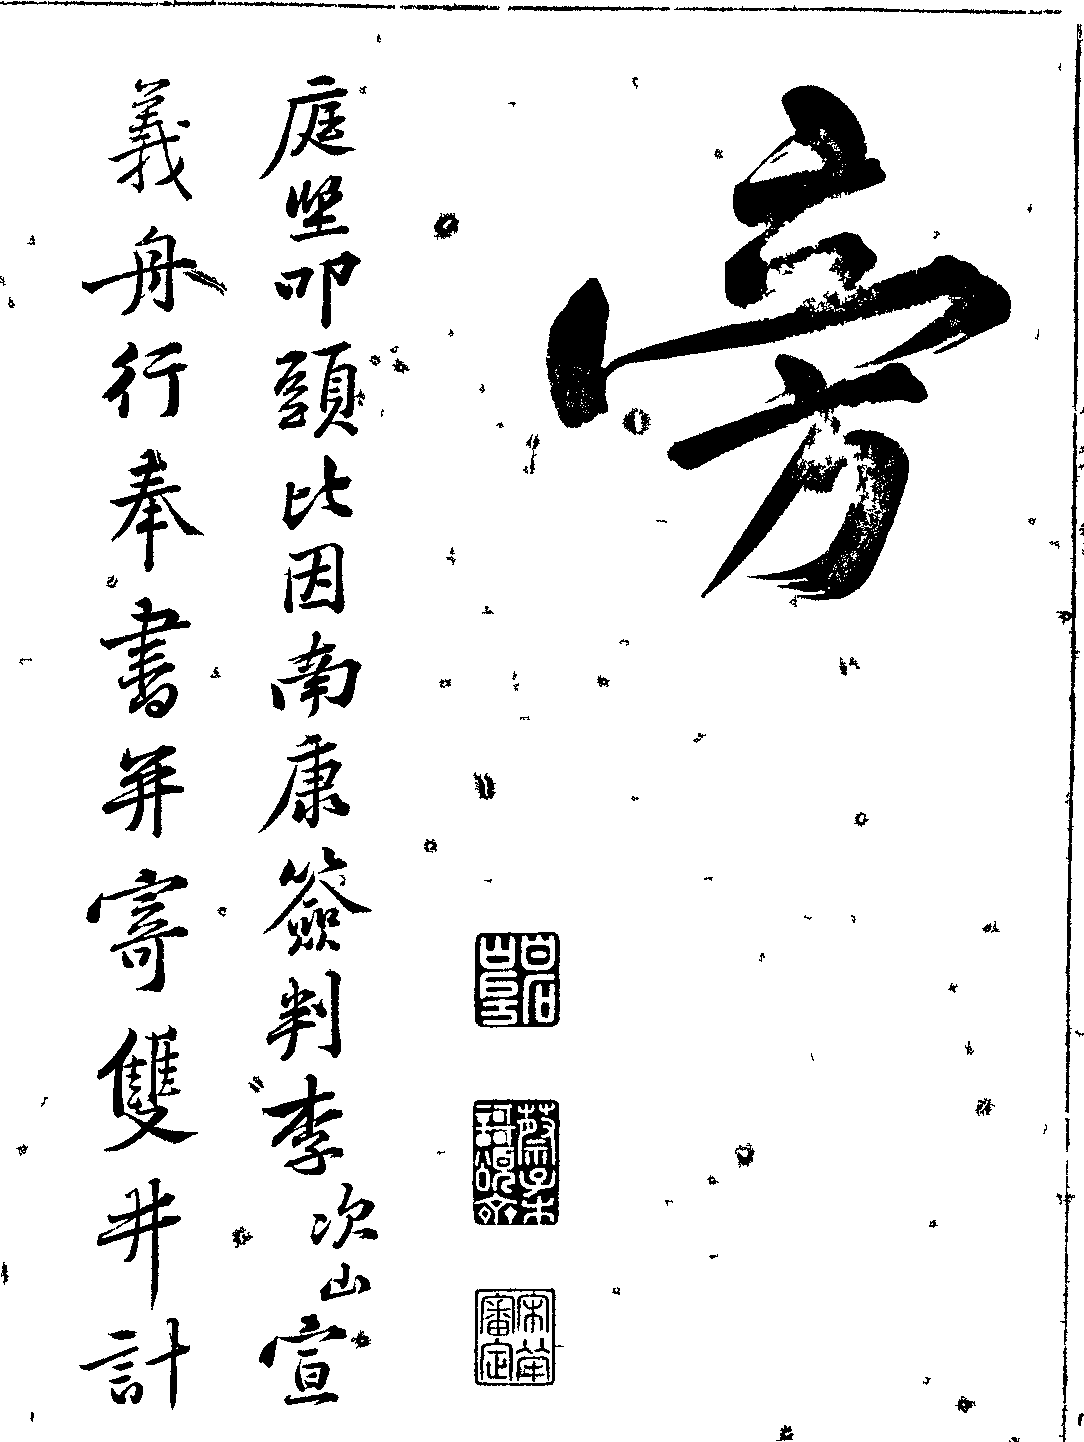 旁
宋犖
審定
庭堅叩頭比因南康簽判李次山宣
義舟行奉書并寄雙井計